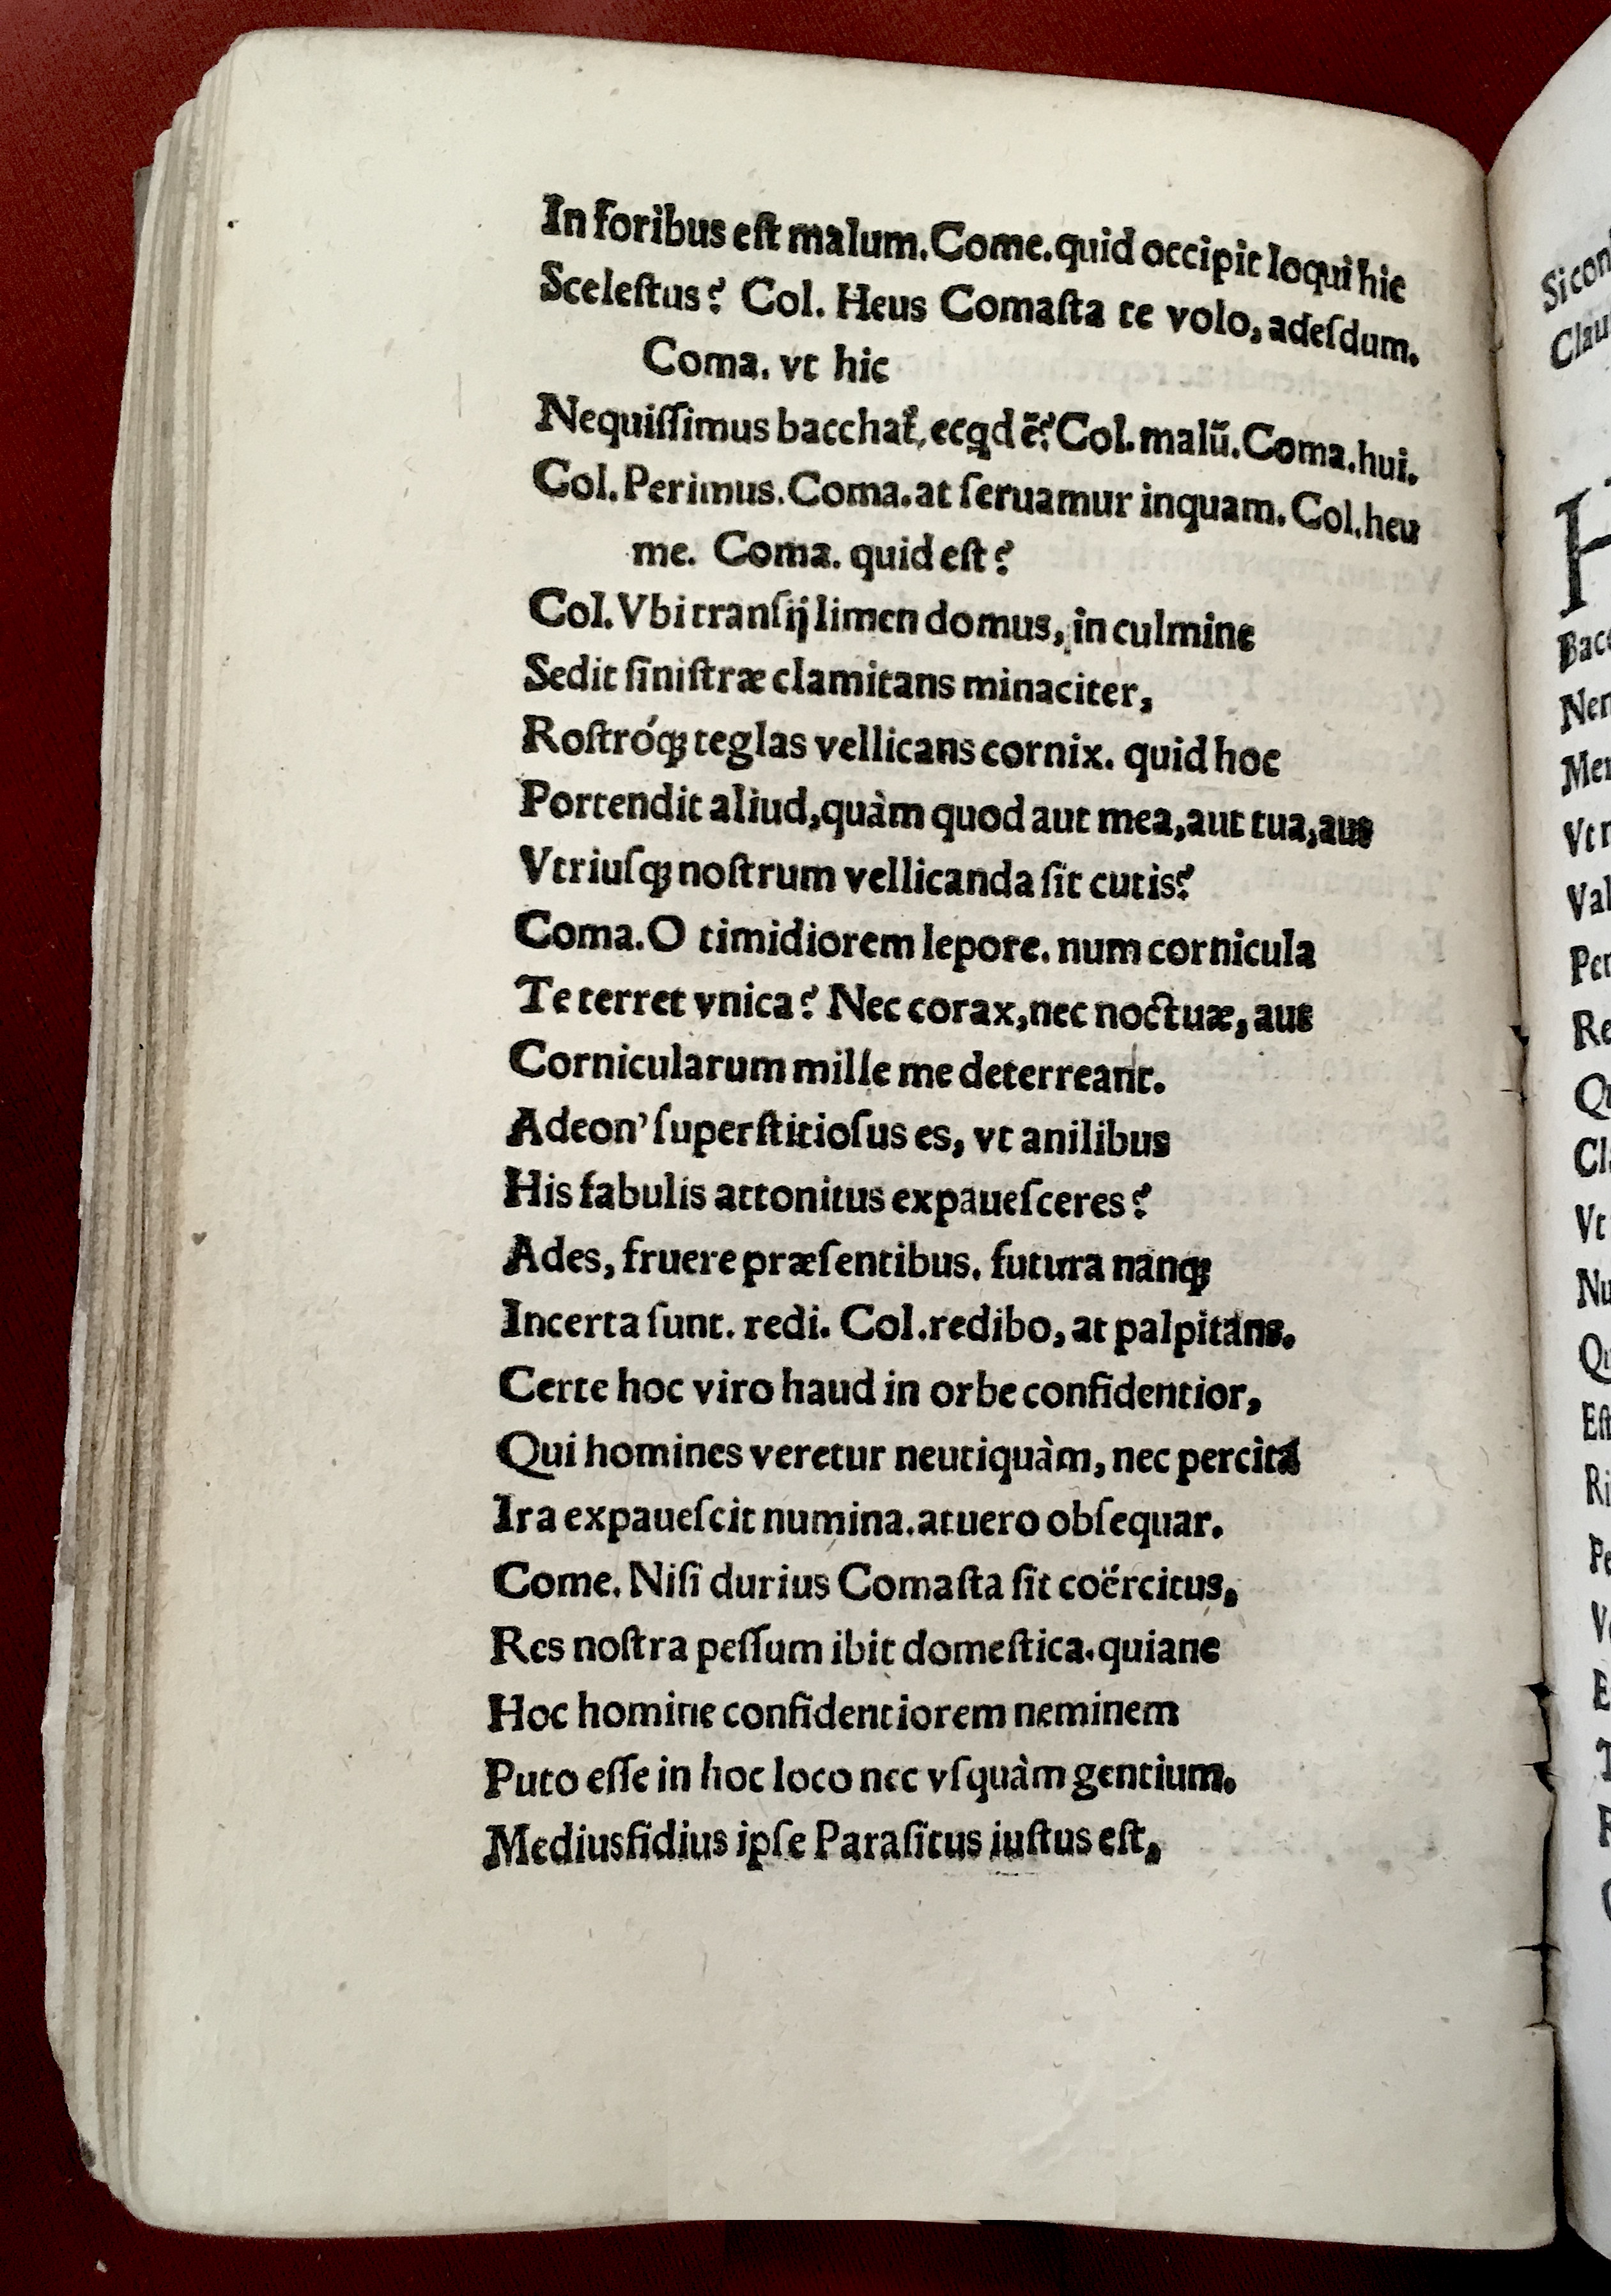 In foribus eſt malum. Come. quid occipit loqui hic
Sceleſtus? Col. Heus Comaſta te volo, adeſdum.
Coma. vt hic
Nequiſſimus bacchat᷑, ecꝗd ē? Col. malū. Coma. hui.
Col. Perimus. Coma. at ſeruamur inquam. Col. heu
me. Coma. quid eſt?
Col. Vbi tranſij limen domus, in culmine
Sedit ſiniſtræ clamitans minaciter,
Roſtróꝗ; teglas vellicans cornix. quid hoc
Portendit aliud, quàm quod aut mea, aut tua, aut
Vtriuſꝗ; noſtrum vellicanda ſit cutis?
Coma. O timidiorem lepore. num cornicula
Te terret vnica? Nec corax, nec noctuæ, aut
Cornicularum mille me deterreant.
Adeon' ſuperſtitioſus es, vt anilibus
His fabulis attonitus expaueſceres?
Ades, fruere præſentibus. futura nanꝗ;
Incerta ſunt. redi. Col. redibo, at palpitans.
Certe hoc viro haud in orbe confidentior,
Qui homines veretur neutiquàm, nec percita
Ira expaueſcit numina. at uero obſequar.
Come. Niſi durius Comaſta ſit coërcitus,
Res noſtra peſſum ibit domeſtica. quia ne
Hoc homine confidentiorem neminem
Puto eſſe in hoc loco nec vſquàm gentium.
Mediusfidius ipſe Paraſitus iuſtus eſt,
Si con
Clau
H
Bacc
Ner
Mer
Vt r
Val
Per
Re
Qu
Cl
Vt
Nu
Qu
Eſt
Ri
Pe